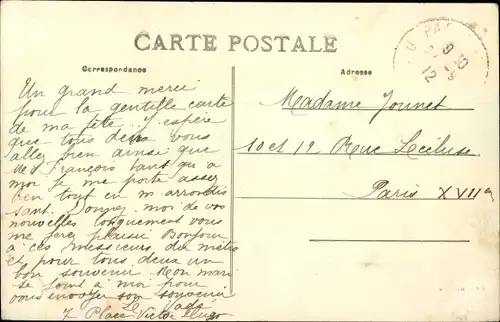 CARTE POSTALE
Correspondance
Adresse
Un grand merci
pour la gentille carte
de ma fête. J'espère
que tous deux vous
allez bien ainsi que
Me François tant qu'a
moi je me porte assez
bien tout en m'arrondis
sant. Donnez moi de vos
nouvelles longuement vous
me ferez plaisir Bonjour
à ces messieurs du métro
et pour tous deux un
bon souvenir. Mon mari
se joint à moi pour
vous envoyer son souvenir
7 Place Victor Hugo
Madame Jounet
10 et 12 Rue Lécluse
Paris XVIIe